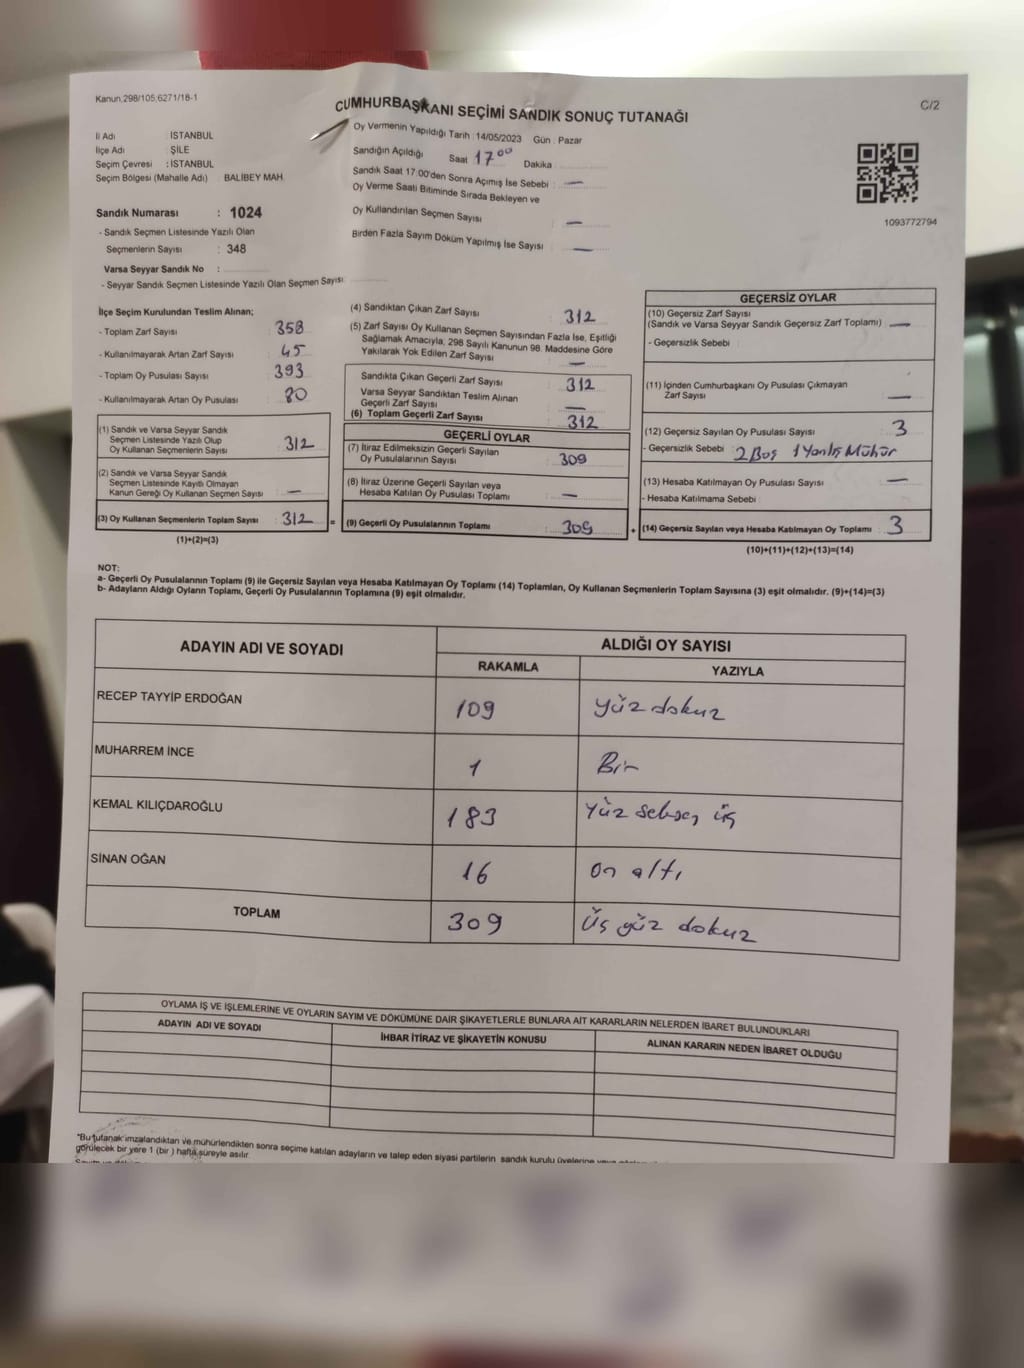 Kanun,298/105,6271/18-1
CUMHURBAŞKANI SEÇİMİ SANDIK SONUÇ TUTANAĞI
C/2
İl Adı : İSTANBUL
İlçe Adı : ŞİLE
Seçim Çevresi : İSTANBUL
Seçim Bölgesi (Mahalle Adı) : BALİBEY MAH.
Oy Vermenin Yapıldığı Tarih : 14/05/2023 Gün : Pazar
Sandığın Açıldığı Saat 17 00 Dakika
Sandık Saat 17:00'den Sonra Açımış İse Sebebi : —
Oy Verme Saati Bitiminde Sırada Bekleyen ve
Oy Kullandırılan Seçmen Sayısı —
Birden Fazla Sayım Döküm Yapılmış İse Sayısı —
1093772794
Sandık Numarası : 1024
- Sandık Seçmen Listesinde Yazılı Olan
Seçmenlerin Sayısı : 348
Varsa Seyyar Sandık No :
- Seyyar Sandık Seçmen Listesinde Yazılı Olan Seçmen Sayısı:
İlçe Seçim Kurulundan Teslim Alınan;
- Toplam Zarf Sayısı : 358
- Kullanılmayarak Artan Zarf Sayısı : 45
- Toplam Oy Pusulası Sayısı : 393
- Kullanılmayarak Artan Oy Pusulası : 80
(1) Sandık ve Varsa Seyyar Sandık
Seçmen Listesinde Yazılı Olup
Oy Kullanan Seçmenlerin Sayısı : 312
(2) Sandık ve Varsa Seyyar Sandık
Seçmen Listesinde Kayıtlı Olmayan
Kanun Gereği Oy Kullanan Seçmen Sayısı : —
(3) Oy Kullanan Seçmenlerin Toplam Sayısı : 312 =
(1)+(2)=(3)
(4) Sandıktan Çıkan Zarf Sayısı : 312
(5) Zarf Sayısı Oy Kullanan Seçmen Sayısından Fazla İse, Eşitliği
Sağlamak Amacıyla, 298 Sayılı Kanunun 98. Maddesine Göre
Yakılarak Yok Edilen Zarf Sayısı : —
Sandıkta Çıkan Geçerli Zarf Sayısı : 312
Varsa Seyyar Sandıktan Teslim Alınan
Geçerli Zarf Sayısı : —
(6) Toplam Geçerli Zarf Sayısı : 312
GEÇERLİ OYLAR
(7) İtiraz Edilmeksizin Geçerli Sayılan
Oy Pusulalarının Sayısı : 309
(8) İtiraz Üzerine Geçerli Sayılan veya
Hesaba Katılan Oy Pusulası Toplamı : —
(9) Geçerli Oy Pusulalarının Toplamı : 309 +
GEÇERSİZ OYLAR
(10) Geçersiz Zarf Sayısı
(Sandık ve Varsa Seyyar Sandık Geçersiz Zarf Toplamı) : —
- Geçersizlik Sebebi :
(11) İçinden Cumhurbaşkanı Oy Pusulası Çıkmayan
Zarf Sayısı : —
(12) Geçersiz Sayılan Oy Pusulası Sayısı : 3
- Geçersizlik Sebebi : 2 Boş 1 Yanlış Mühür
(13) Hesaba Katılmayan Oy Pusulası Sayısı : —
- Hesaba Katılmama Sebebi :
(14) Geçersiz Sayılan veya Hesaba Katılmayan Oy Toplamı : 3
(10)+(11)+(12)+(13)=(14)
NOT:
a- Geçerli Oy Pusulalarının Toplamı (9) ile Geçersiz Sayılan veya Hesaba Katılmayan Oy Toplamı (14) Toplamları, Oy Kullanan Seçmenlerin Toplam Sayısına (3) eşit olmalıdır. (9)+(14)=(3)
b- Adayların Aldığı Oyların Toplamı, Geçerli Oy Pusulalarının Toplamına (9) eşit olmalıdır.
ADAYIN ADI VE SOYADI
ALDIĞI OY SAYISI
RAKAMLA YAZIYLA
RECEP TAYYİP ERDOĞAN 109 yüz dokuz
MUHARREM İNCE 1 Bir
KEMAL KILIÇDAROĞLU 183 yüz seksen üç
SİNAN OĞAN 16 on altı
TOPLAM 309 üç yüz dokuz
OYLAMA İŞ VE İŞLEMLERİNE VE OYLARIN SAYIM VE DÖKÜMÜNE DAİR ŞİKAYETLERLE BUNLARA AİT KARARLARIN NELERDEN İBARET BULUNDUKLARI
ADAYIN ADI VE SOYADI İHBAR İTİRAZ VE ŞİKAYETİN KONUSU ALINAN KARARIN NEDEN İBARET OLDUĞU
"Bu tutanak imzalandıktan ve mühürlendikten sonra seçime katılan adayların ve talep eden siyasi partilerin sandık kurulu üyelerine veya
görülecek bir yere 1 (bir ) hafta süreyle asılır.